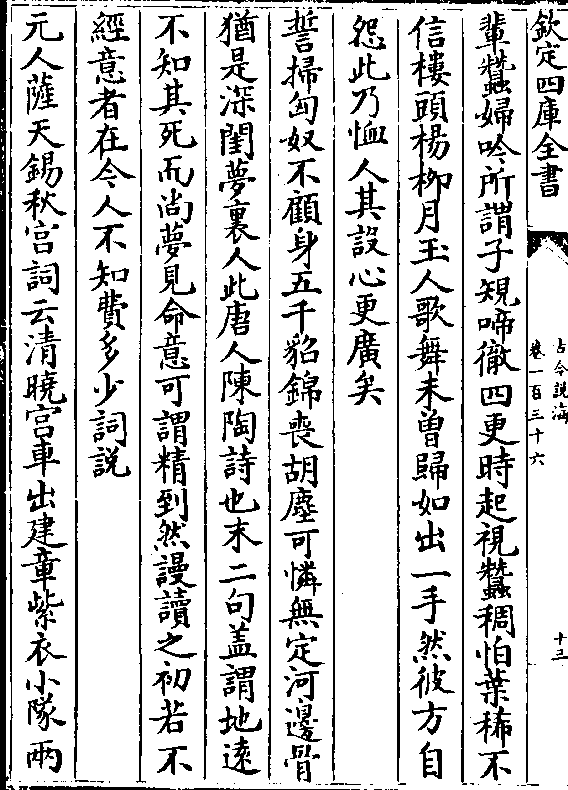 欽定四庫全書
古今說海
卷一百三十六
十三
輩蠶婦吟所謂子規啼徹四更時起視蠶稠怕葉稀不
信樓頭楊柳月玉人歌舞未曽歸如出一手然彼方自
怨此乃恤人其設心更廣矣
誓掃匈奴不顧身五千貂錦喪胡塵可憐無定河邊骨
猶是深閨夢裏人此唐人陳陶詩也末二句盖謂地逺
不知其死而尚夢見命意可謂精到然謾讀之初若不
經意者在今人不知費多少詞説
元人薩天錫秋宫詞云清曉宫車出建章紫衣小隊兩